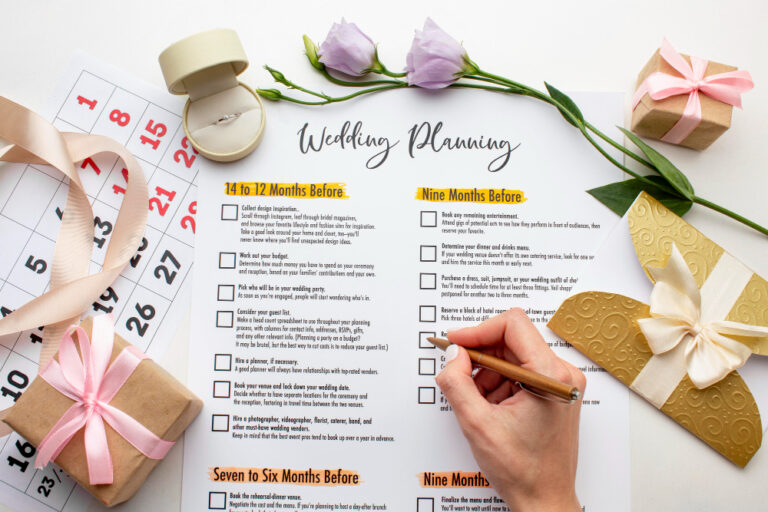 Wedding Planning
14 to 12 Months Before
Collect design inspiration.
Scroll through Instagram, leaf through bridal magazines,
and browse your favorite lifestyle and fashion sites for inspiration.
Take a good look around your home and closet, too—you'll
never know where you'll find unexpected design ideas.
Work out your budget.
Determine how much money you have to spend on your ceremony
and reception, based on your families' contributions and your own.
Pick who will be in your wedding party.
As soon as you're engaged, people will start wondering who's in.
Consider your guest list.
Make a head count spreadsheet to use throughout your planning
process, with columns for contact info, addresses, RSVPs, gifts,
and any other relevant info. (Planning a party on a budget?
It may be brutal, but the best way to cut costs is to reduce your guest list.)
Hire a planner, if necessary.
A good planner will always have relationships with top-rated vendors.
Book your venue and lock down your wedding date.
Decide whether to have separate locations for the ceremony and
the reception, factoring in travel time between the two venues.
Hire a photographer, videographer, florist, caterer, band, and
other must-have wedding vendors.
Keep in mind that the best event pros tend to book up over a year in advance.
Seven to Six Months Before
Book the rehearsal-dinner venue.
Negotiate the cost and the menu. If you're planning to host a day-after brunch
Nine Months Before
Book any remaining entertainment.
Attend gigs of potential acts to see how they perform in front of audiences, then
reserve your favorite.
Determine your dinner and drinks menu.
If your wedding venue doesn't offer its own catering service, look for one
and hire the service this month or early next.
Purchase a dress, suit, jumpsuit, or your wedding outfit of
You'll need to schedule time for at least three fittings. Veil
postponed for another two to three months.
Reserve a block of hotel rooms
Pick three hotels
Nine Months
Finalize the menu and
You'll want to wait until
1 8 15
7
21
29
5 13
27
19 26
10
16
23/30